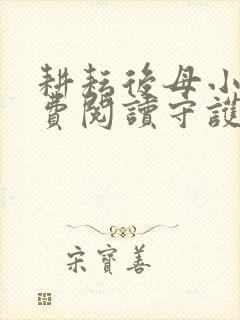 耕耘後母小
費閱讀守護
宋寶善